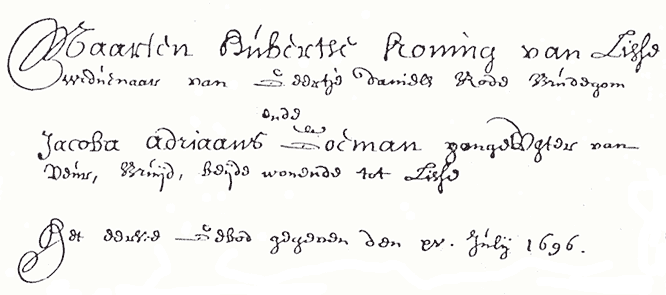 Maarten Hubertse Koning van Lisse
weduenaar van Geertje Daniels Rode Bruidegom
ende
Jacoba Adriaans Boeman jongedogter van
Veur, Bruijd, beijde wonende tot Lisse
Het eerste Gebod gegeven den xv. Julij 1696.